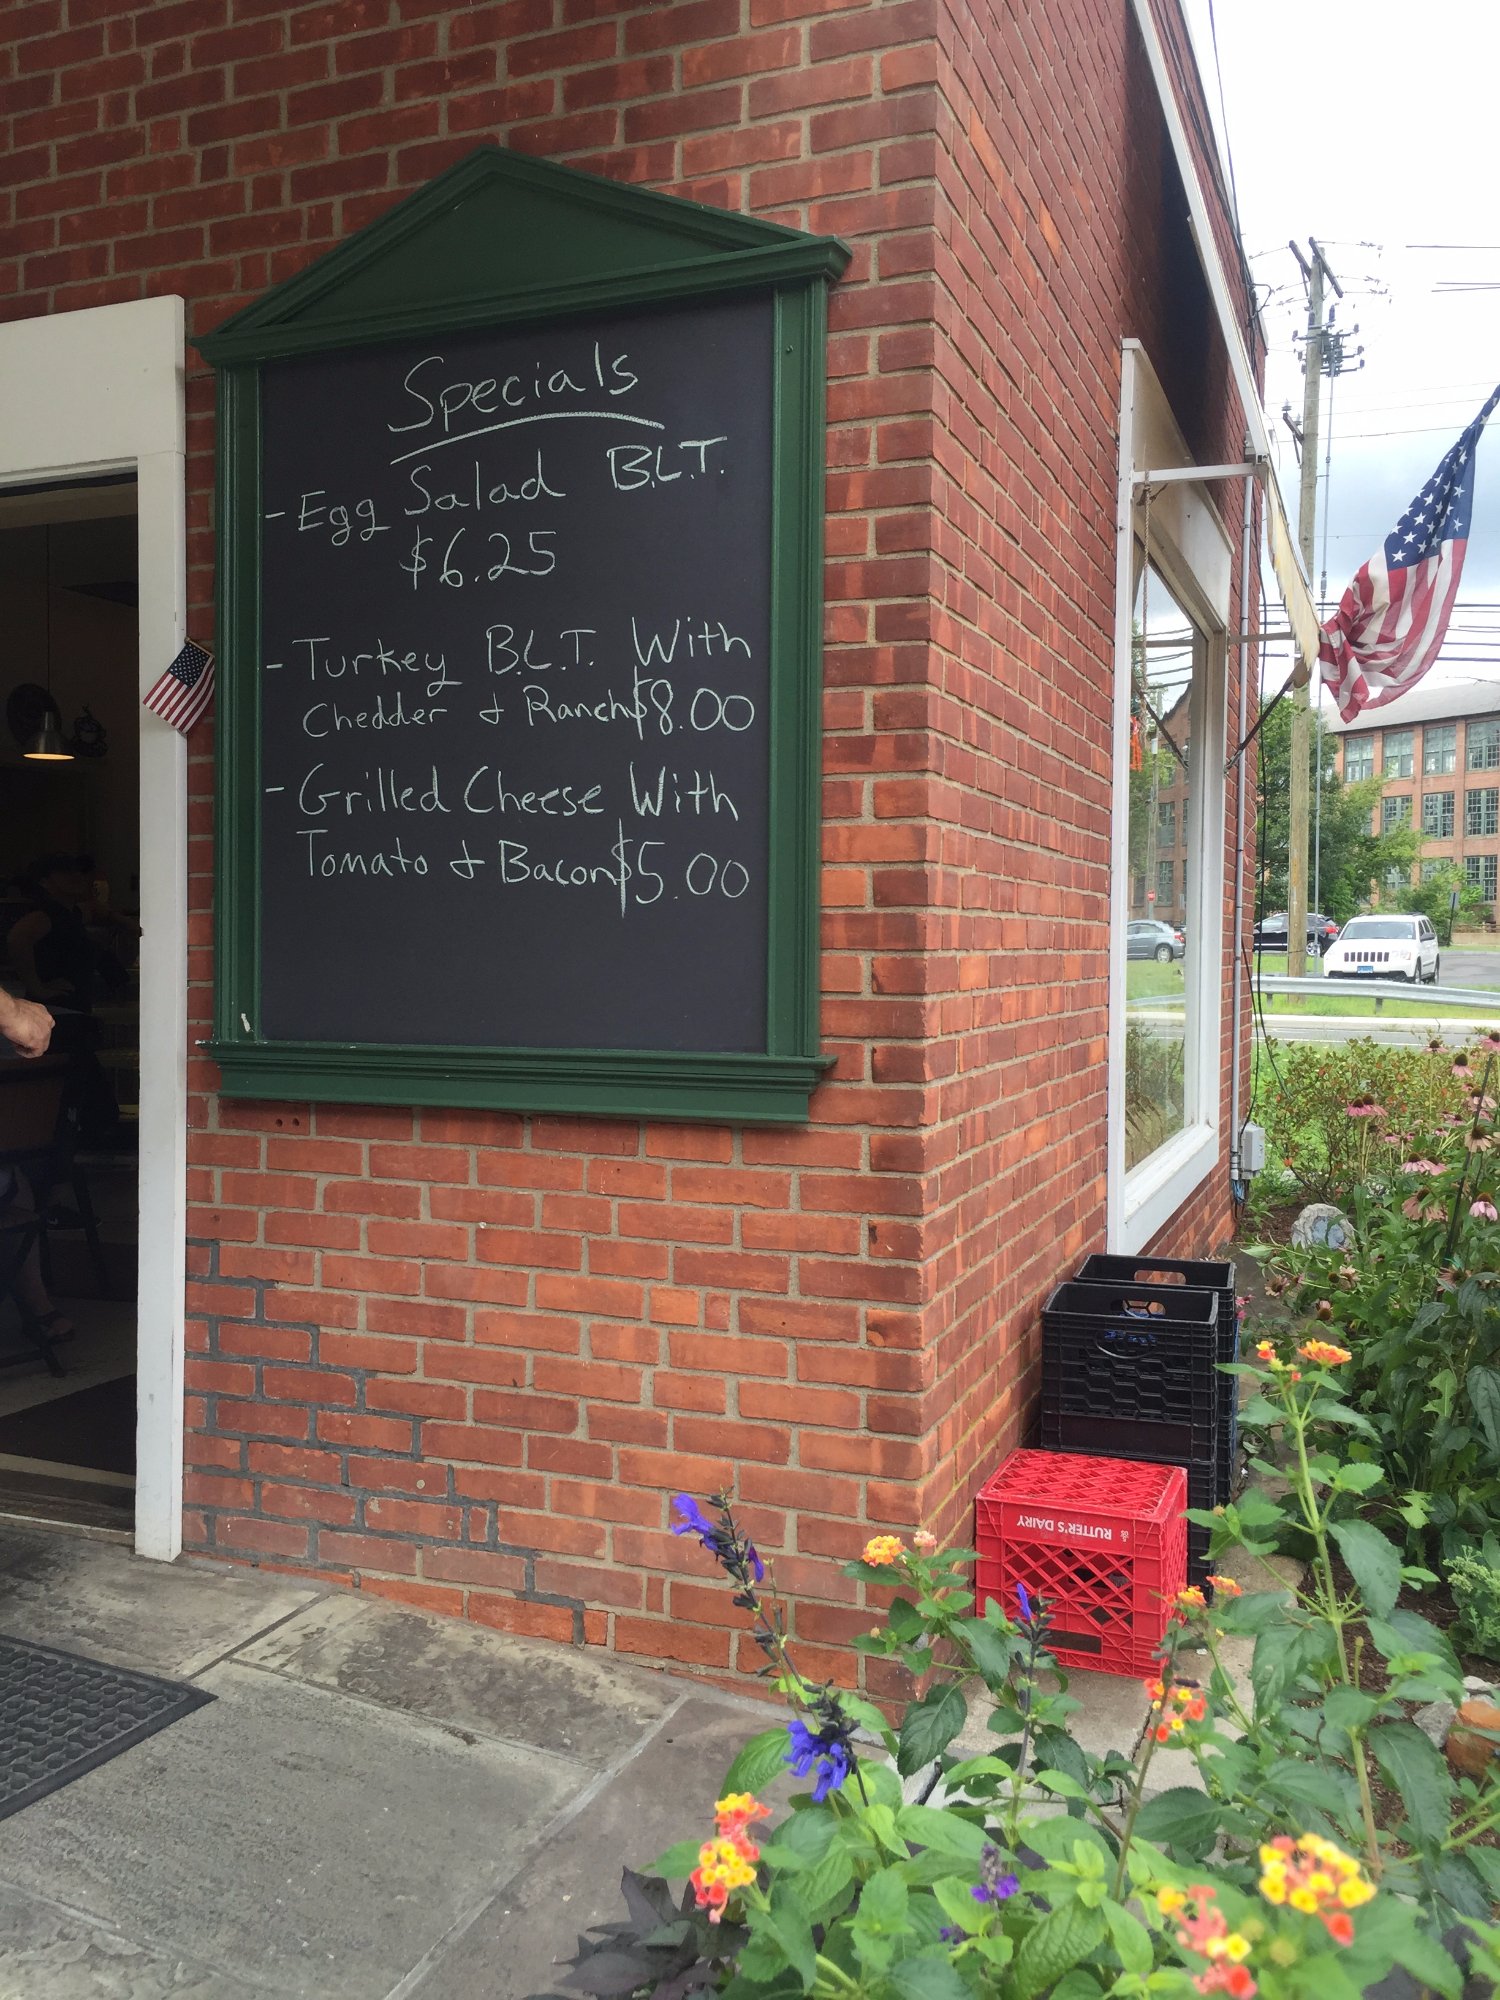 Specials
- Egg Salad B.L.T.
$6.25
- Turkey B.L.T. With
Chedder & Ranch $8.00
- Grilled Cheese With
Tomato & Bacon $5.00
RUTTER'S DAIRY